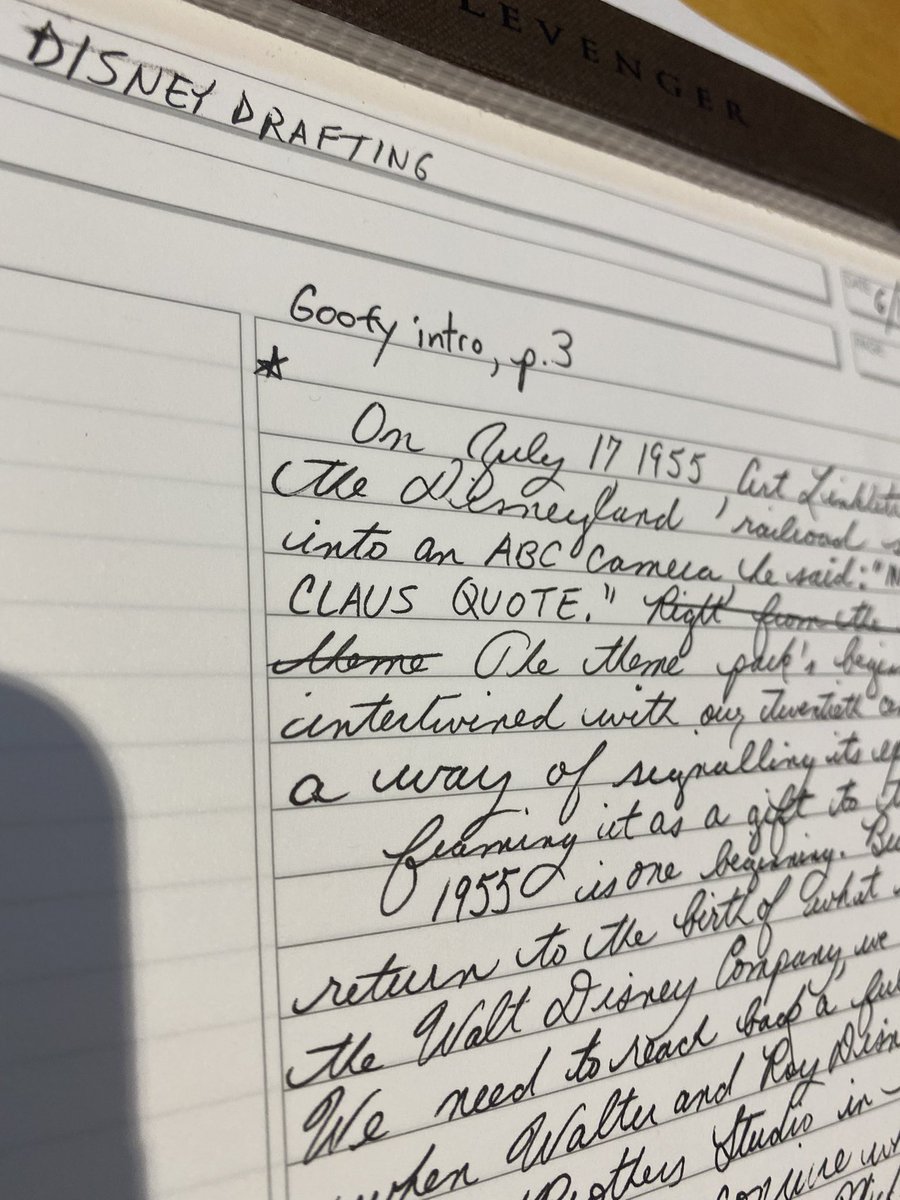 LEVENGER
DISNEY DRAFTING
DATE 6/
PAGE
Goofy intro, p.3
On July 17 1955 Art
the Disneyland railroad
into an ABC camera he said: "
CLAUS QUOTE." Right from the
theme The theme park's
intertwined with our twentieth
a way of signalling its
framing it as a gift to
1955 is one beginning.
return to the birth of what
the Walt Disney Company, we
We need to reach back a
when Walter and Roy
Brothers Studio in